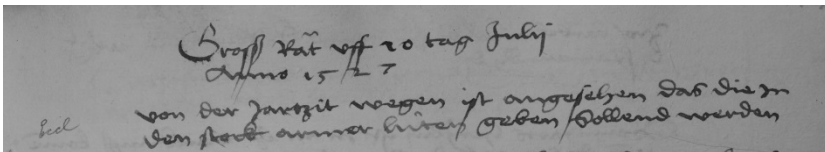 Gross Rat uff 20 tag Julij
Anno 1527
von der Jartzit wegen ist angesehen das die In
den stock armer lüten geben sollend werden